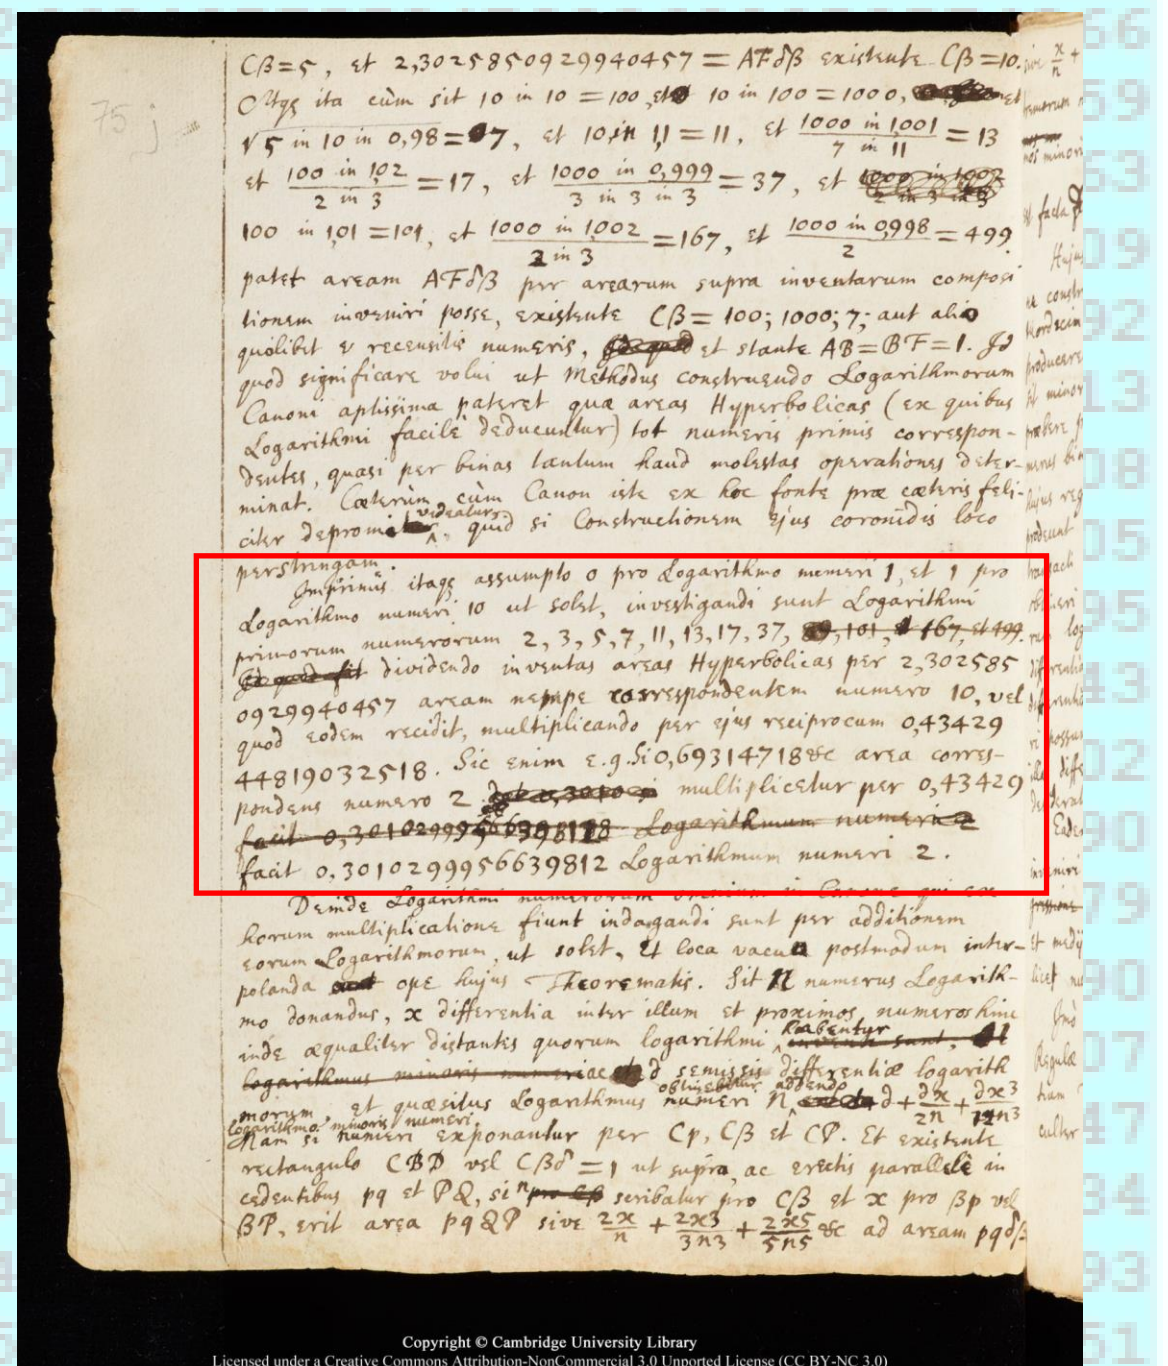 Cβ=5, et 2,302585092994 0457 = AFδβ existente Cβ=10.
Atqꝫ ita cùm sit 10 in 10 = 100, et 10 in 100 = 1000, et
√5 in 10 in 0,98 = 7, et 10 in 1,1 = 11, et 1000 in 1,001 / 7 in 11 = 13
et 100 in 1,02 / 2 in 3 = 17, et 1000 in 0,999 / 3 in 3 in 3 = 37, et
100 in 1,01 = 101, et 1000 in 1,002 / 2 in 3 = 167, et 1000 in 0,998 / 2 = 499.
patet aream AFδβ per arearum supra inventarum composi
tionem inveniri posse, existente Cβ = 100; 1000; 7; aut alio
quolibet e recensitis numeris, et stante AB=BF=1. Id
quod significare volui ut Methodus construendo Logarithmorum
Canoni aptissima pateret quæ areas Hyperbolicas (ex quibus
Logarithmi facilè deducuntur) tot numeris primis correspon-
dentes, quasi per binas tantum haud molestas operationes deter-
minat. Cæterùm, cùm Canon iste ex hoc fonte præ cæteris feli-
citer depromi videatur, quid si Constructionem ejus coronidis loco
perstringam.
Imprimis itaqꝫ assumpto 0 pro Logarithmo numeri 1, et 1 pro
Logarithmo numeri 10 ut solet, investigandi sunt Logarithmi
primorum numerorum 2, 3, 5, 7, 11, 13, 17, 37, 89, 101, 167, et 499.
dividendo inventas areas Hyperbolicas per 2,302585
0929940457 aream nempe correspondentem numero 10, vel
quod eodem recidit, multiplicando per ejus reciprocum 0,43429
44819032518. Sic enim e.g. Si 0,69314718 &c area corres-
pondens numero 2 multiplicetur per 0,43429
facit Logarithmum numeri 2
facit 0,3010299956639812 Logarithmum numeri 2.
Deinde Logarithmi numerorum omnium in Canone qui ex
horum multiplicatione fiunt indagandi sunt per additionem
eorum Logarithmorum, ut solet, Et loca vacua postmodum inter-
polanda ope hujus Theorematis. Sit n numerus Logarith-
mo donandus, x differentia inter illum et proximos numeros hinc
inde æqualiter distantes quorum logarithmi habentur
logarithmus minoris numeri ac d semissis differentiæ logarith
morum, et quæsitus Logarithmus numeri n obtinebitur addendo d + dx/2n + dx3/12n3
logarithmo minoris numeri.
Nam si numeri exponantur per Cp, Cβ et CP. Et existente
rectangulo CBD vel Cβδ = 1 ut supra, ac erectis parallelè in
cedentibus pq et PQ, si n scribatur pro Cβ et x pro βp vel
βP, erit area pqQP sive 2x/n + 2x3/3n3 + 2x5/5n5 &c ad aream pqδβ
Copyright © Cambridge University Library
Licensed under a Creative Commons Attribution-NonCommercial 3.0 Unported License (CC BY-NC 3.0)